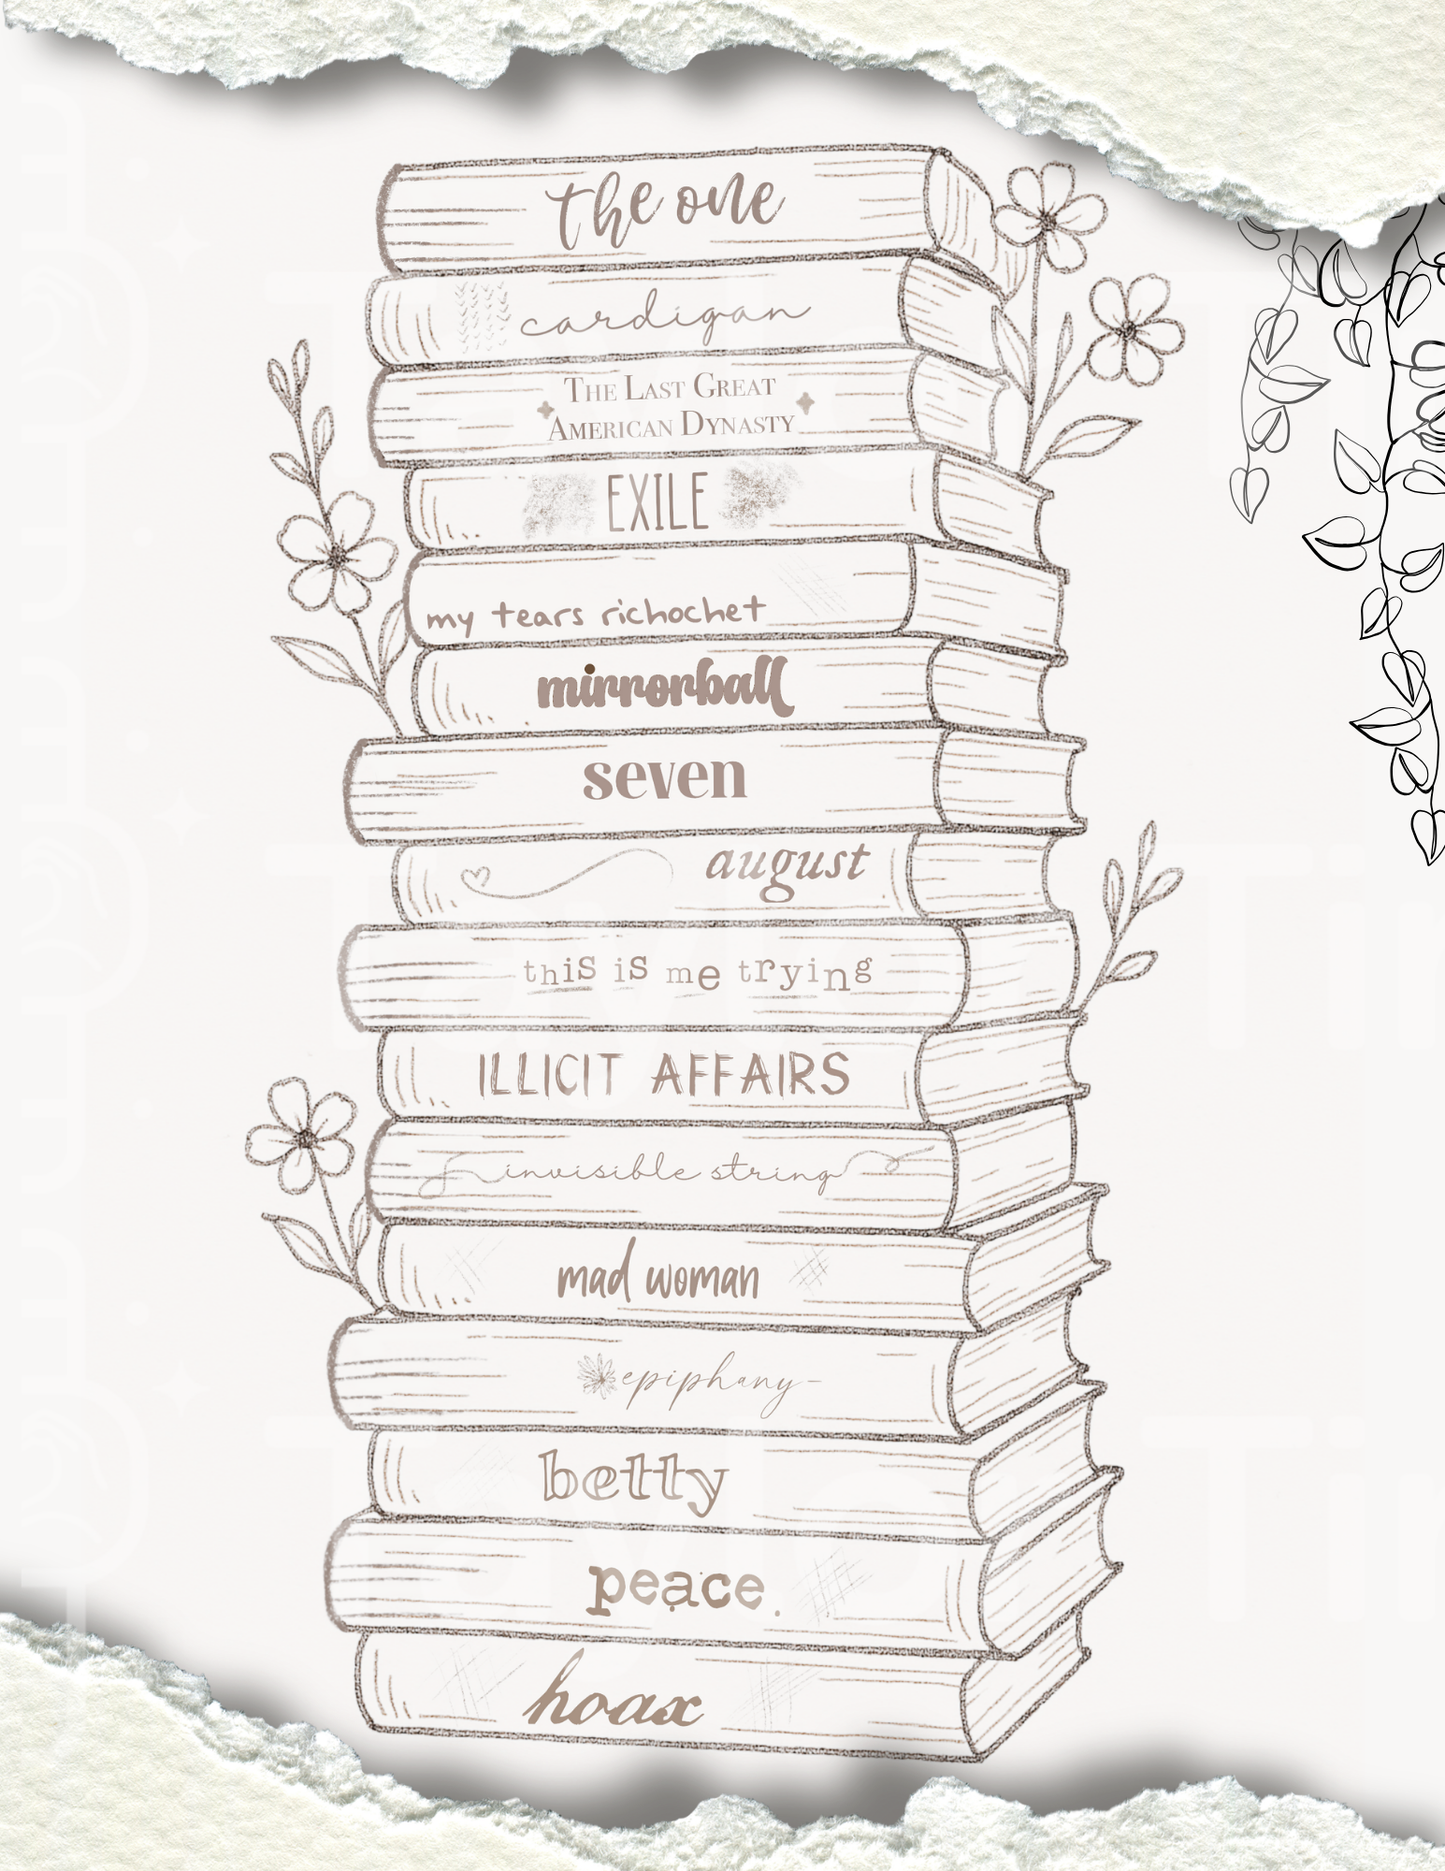 the one
cardigan
THE LAST GREAT
AMERICAN DYNASTY
EXILE
my tears richochet
mirrorball
seven
august
this is me trying
ILLICIT AFFAIRS
invisible string
mad woman
epiphany-
betty
peace.
hoax